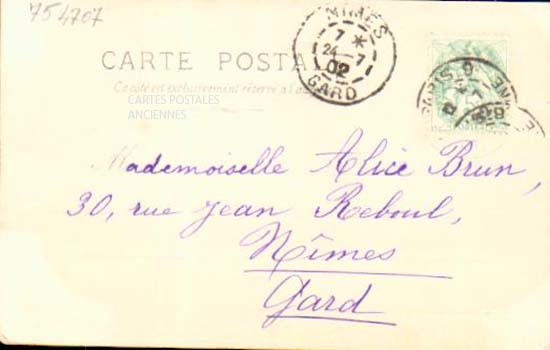 754707
NIMES
7 *
24 - 7
02
GARD
CARTE POSTA
Ce côté est exclusivement réservé à l'a
CARTES POSTALES
ANCIENNES
PARIS
Mademoiselle Alice Brun,
30, rue Jean Reboul,
Nîmes
Gard